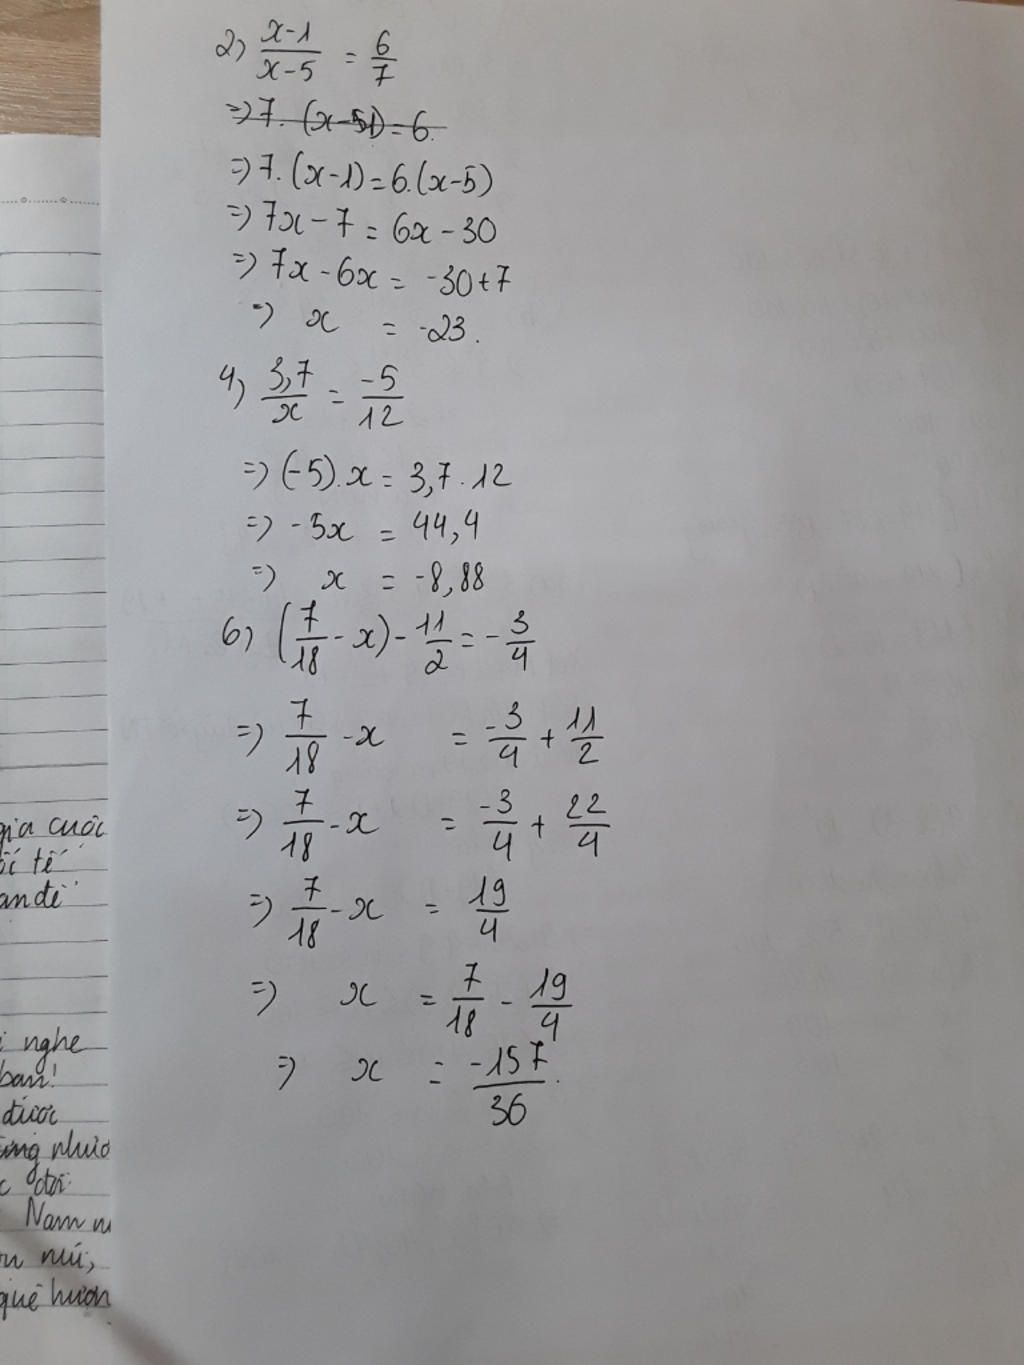 2) (x-1)/(x-5) = 6/7
=> 7. (x-51) = 6.
=> 7.(x-1) = 6.(x-5)
=> 7x - 7 = 6x - 30
=> 7x - 6x = -30+7
=> x = -23.
4) 3,7/x = -5/12
=> (-5).x = 3,7.12
=> -5x = 44,4
=> x = -8,88
6) (7/18 - x) - 11/2 = - 3/4
=> 7/18 - x = -3/4 + 11/2
=> 7/18 - x = -3/4 + 22/4
=> 7/18 - x = 19/4
=> x = 7/18 - 19/4
=> x = -157/36.
gia cuộc
tế
nghe
bạn!
được
đời.
Nam
núi,
quê hươn